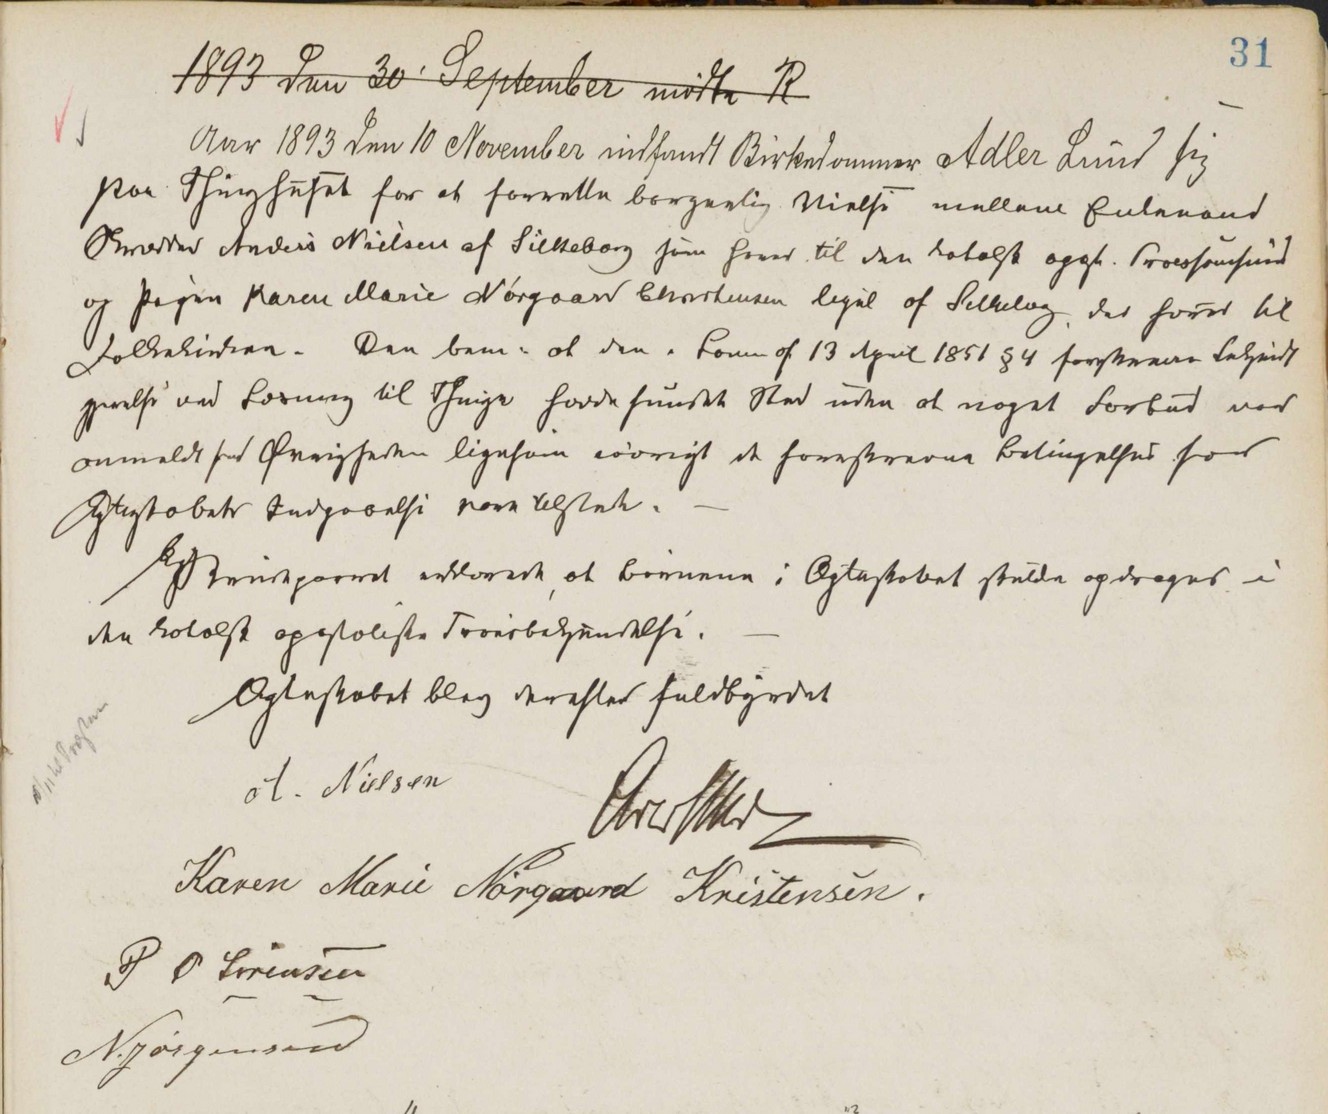 31
1893 den 30' September mødte R
Aar 1893 den 10 November indfandt Birkedommer Adler Lund sig
paa Thinghuset for at forrette borgerlig Vielse mellem Enkemand
Skrædder Anders Nielsen af Silkeborg som hører til den katolsk apost. Troessamfund
og Pigen Karen Marie Nörgaard Christensen ligel. af Silkeborg, der hører til
Folkekirken. Den bem. at den i Loven af 13 April 1851 § 4 foreskrevne Bekjendt
gjørelse ved Læsning til Thinge havde fundet Sted uden at noget Forbud var
anmeldt for Øvrigheden ligesom iøvrigt de foreskrevne Betingelser for
Ægteskabets Indgaaelse vare tilstede. —
Brudeparret erklærede, at Børnene i Ægteskabet skulde opdrages i
den katolsk apostoliske Troesbekjendelse. —
Ægteskabet blev derefter fuldbyrdet
A. Nielsen
Karen Marie Nörgaard Kristensen.
P O Sörensen
N. Jörgensen